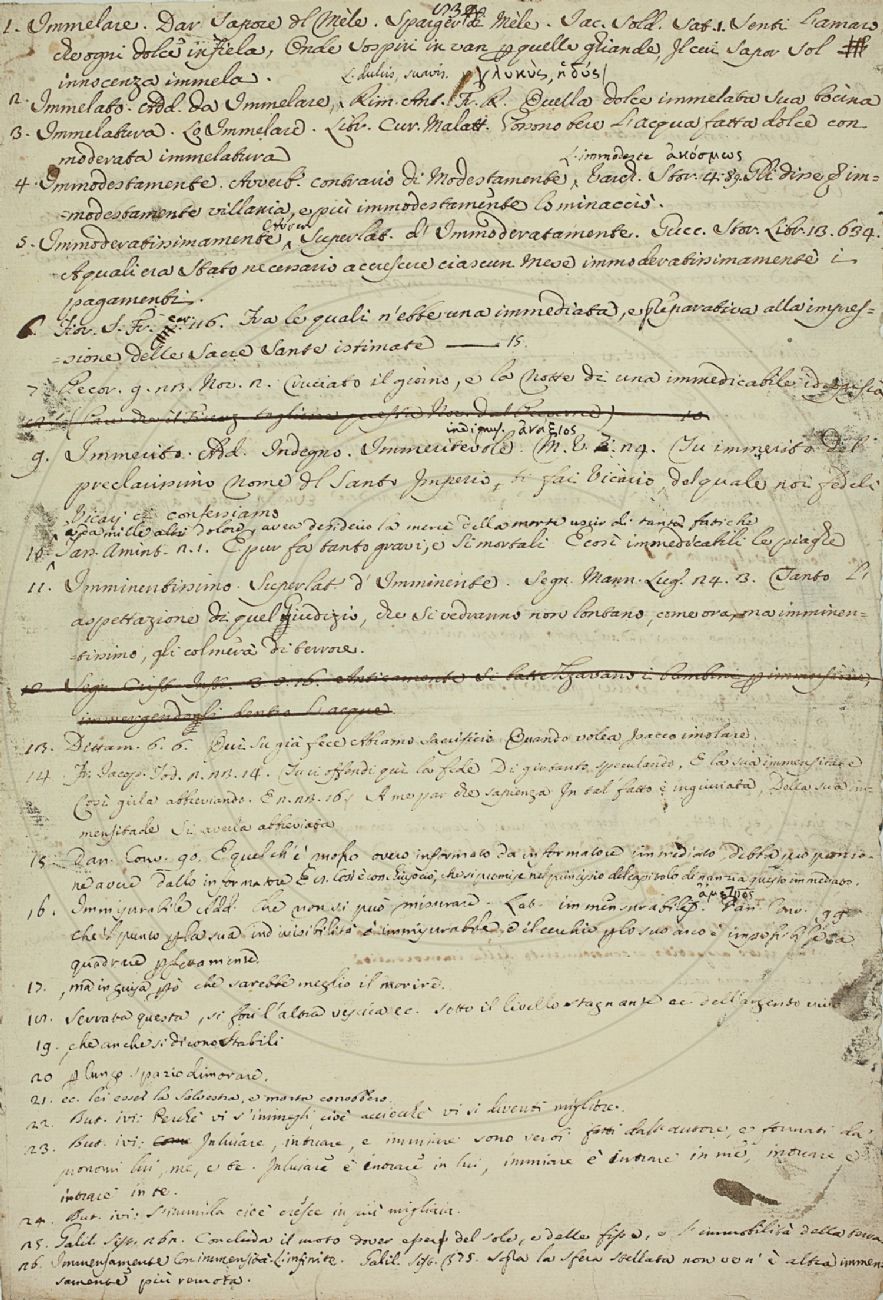 1. Immelare. Dar Sapore di Mele. Sparger di Mele. Jac. Sold. Sat. 1. Senti l'amaro
che ogni dolce infiela, Onde sospiri in van p quelle ghiande, Il cui sapor sol
innocenza immela.
L. dulcis, suavis. γλυκὺς, ἡδὺς
2. Immelato. Add. da Immelare, Rim. Ant. Fr. R. Quella dolce immelata sua bocina
3. Immelatura. Lo Immelare. Libr. Cur. Malatt. Ponono bere l'acqua fatta dolce con
moderata immelatura
L. immodeste ἀκόσμως
4. Immodestamente. Avverb. contrario di Modestamente, Varch. Stor. 4. 89. Gli disse im-
=modestamente villania, e più immodestamente lo minacciò.
5. Immoderatissimamente, Superlat. d'Immoderatamente. Guicc. Stor. Libr. 13. 634.
A quali era stato necessario accrescere ciascun Mese immoderatissimamente i
pagamenti.
6. Fior. S. Fr. 116. Fra le quali n'ebbe una immediata, e preparativa alla impres-
=sione delle Sacre Sante istimate —— 15.
7. Pecor. g. 13. Nov. 2. Cruciato il giorno, e la notte di una immedicabile idropesia
indignus. ἀνάξιος
9. Immerito. Add. Indegno. Immeritevole. M. V. 2. 24. Tu immerito del
preclarissimo nome del Santo Imperio, ti fai Vicario, del quale noi fedeli
Vicarj ci confessiamo
Da mille altri dolori, avea desiderio la mercè della morte uscir di tanta fatiche
10. San. Amint. 2. 1. E pur fa tanto gravi, e sì mortali E così immedicabili le piaghe
11. Imminentissimo. Superlat. d'Imminente. Segn. Mann. Lugl. 24. 3. Tanto l'
aspettazione di quel giudizio, che si vedranno non lontano, come ora, ma imminen-
=tissimo, gli colmerà di terrore.
12. Segn. Crist. Instr. 3. 2. 16. Anticamente si battezzavano i bambini p immersione,
immergendogli dentro l'acque
13. Dittam. 6. 6. Qui su già fece Abramo sacrificio Quando volea Isacco imolare
14. Fr. Jacop. Tod. 2. 23. 14. Tu ci offendi qui la fede Di gir tanto speculando, E la sua immensitade
Così girla abbreviando. E n. 16. A me par che sapienza In tal fatto è ingiuriata, Della sua im-
mensitade Si averla abbreviata
15. Dan. Conv. 90. E quel ch'è mosso ovvero informato da informatore immediato, debba
avere dallo informatore E
16. Immisurabile Add. Che non si può misurare. Lat. immensurabilis. ἄμετρος Dan. Conv. 99
che 'l punto p la sua indivisibilità è immisurabile e il cerchio p lo suo arco è impossibile a
quadrare perfettamente
17. , ma in guisa però che sarebbe meglio il morire.
18. Serrata questa, si fori l'altra vescica ec. sotto il livello stagnante ec. dell'argento vivo
19. , che anche si dicono stabili
20. p lungo spazio dimorare.
21. ec. lei esser la Salvestra, e morta conobbero.
22. But. ivi: Perchè vi s'immegli, cioè acciocchè vi si diventi migliore.
23. But. ivi: Inluiare, intuare, e immiare sono verbi fatti dall'autore, e formati da
pronomi lui, me, e te. Inluiare è entrare in lui, immiare è intrare in me, intuare è
intrare in te.
24. But. ivi: S'immilla cioè cresce in più migliaia.
25. Galil. Sist. 262. Concluda il moto dover esser del sole, e delle fisse, e l'immobilità della terra
26. Immensamente Con immensità. L. infinite. Galil. Sist. 375. sopra la sfera stellata non ve n'è altra immen-
samente più remota.